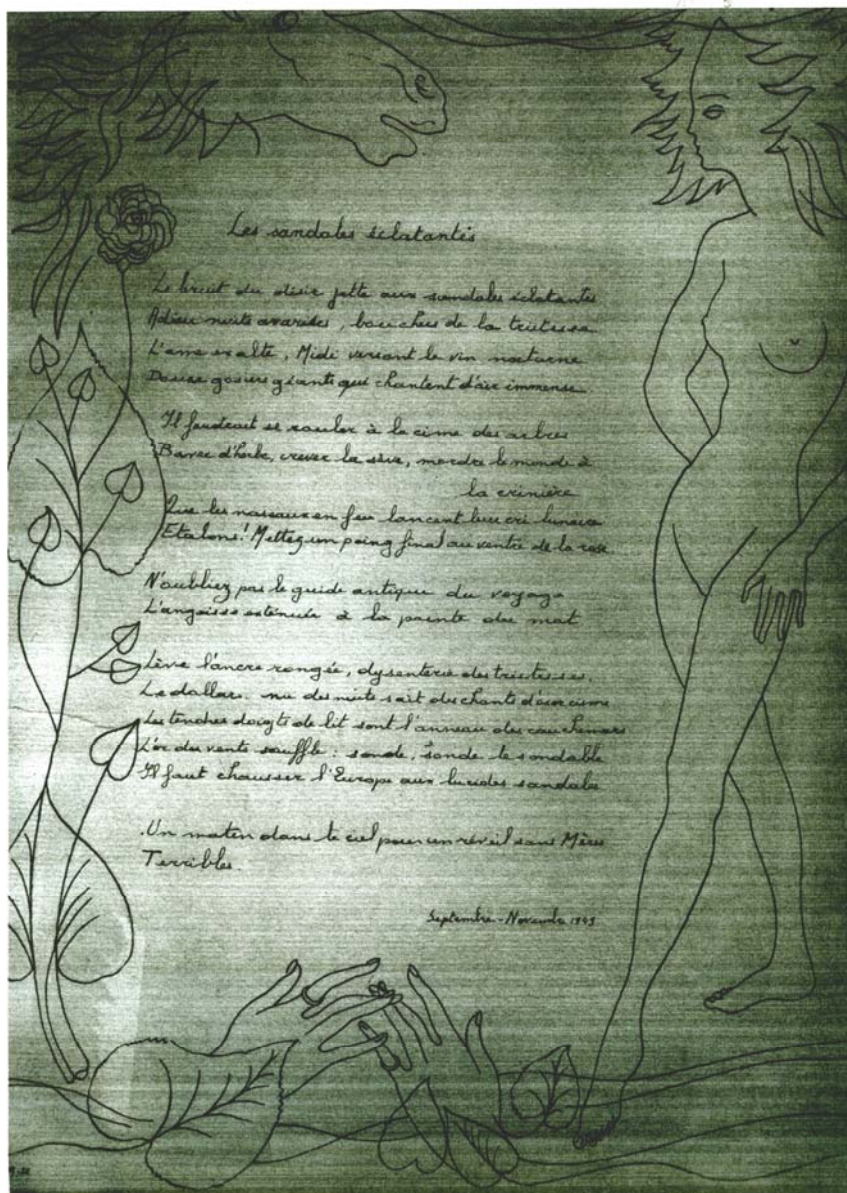 Les sandales éclatantes
Le bruit du désir jette aux sandales éclatantes
Adieu nuits avarices, bouches de la tristesse
L'ame exalte, Midi versant le vin nocturne
Douze gosiers géants qui chantent d'air immense
Il faudrait se rouler à la cime des arbres
Baver d'herbe, crever la sève, mordre le monde à
la crinière
Que les naseaux en feu lancent leur cri lunaire
Etalons! Mettez un poing final au ventre de la rose
N'oubliez pas le guide antique du voyage
L'angoisse exténuée à la pointe du mat
Lève l'ancre rongée, dysenterie des tristesses.
Le dollar nu des nuits sait des chants d'exorcisme
Les tendres doigts de lit sont l'anneau des cauchemars
L'or des vents souffle: sonde, sonde le sondable
Il faut chausser l'Europe aux lucides sandales
Un matin dans le ciel pour un réveil sans Mères
Terribles.
Septembre-Novembre 1949